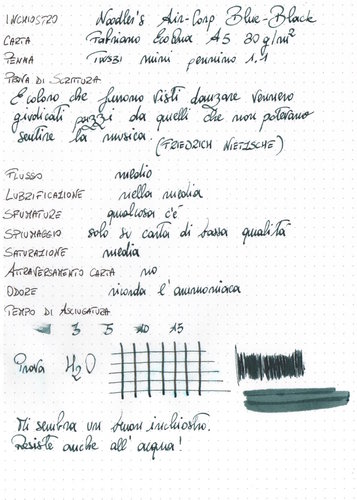 INCHIOSTRO Noodler's Air-Corp Blue-Black
CARTA Fabriano EcoQua A5 80 g/m²
PENNA TWSBI mini pennino 1.1
PROVA DI SCRITTURA
E coloro che furono visti danzare vennero
giudicati pazzi da quelli che non potevano
sentire la musica.
(FRIEDRICH NIETZSCHE)
FLUSSO medio
LUBRIFICAZIONE nella media
SFUMATURE qualcosa c'è
SPIUMAGGIO solo su carta di bassa qualità
SATURAZIONE media
ATTRAVERSAMENTO CARTA no
ODORE ricorda l'ammoniaca
TEMPO DI ASCIUGATURA
3 5 10 15
Prova H2O
Mi sembra un buon inchiostro.
Resiste anche all'acqua!